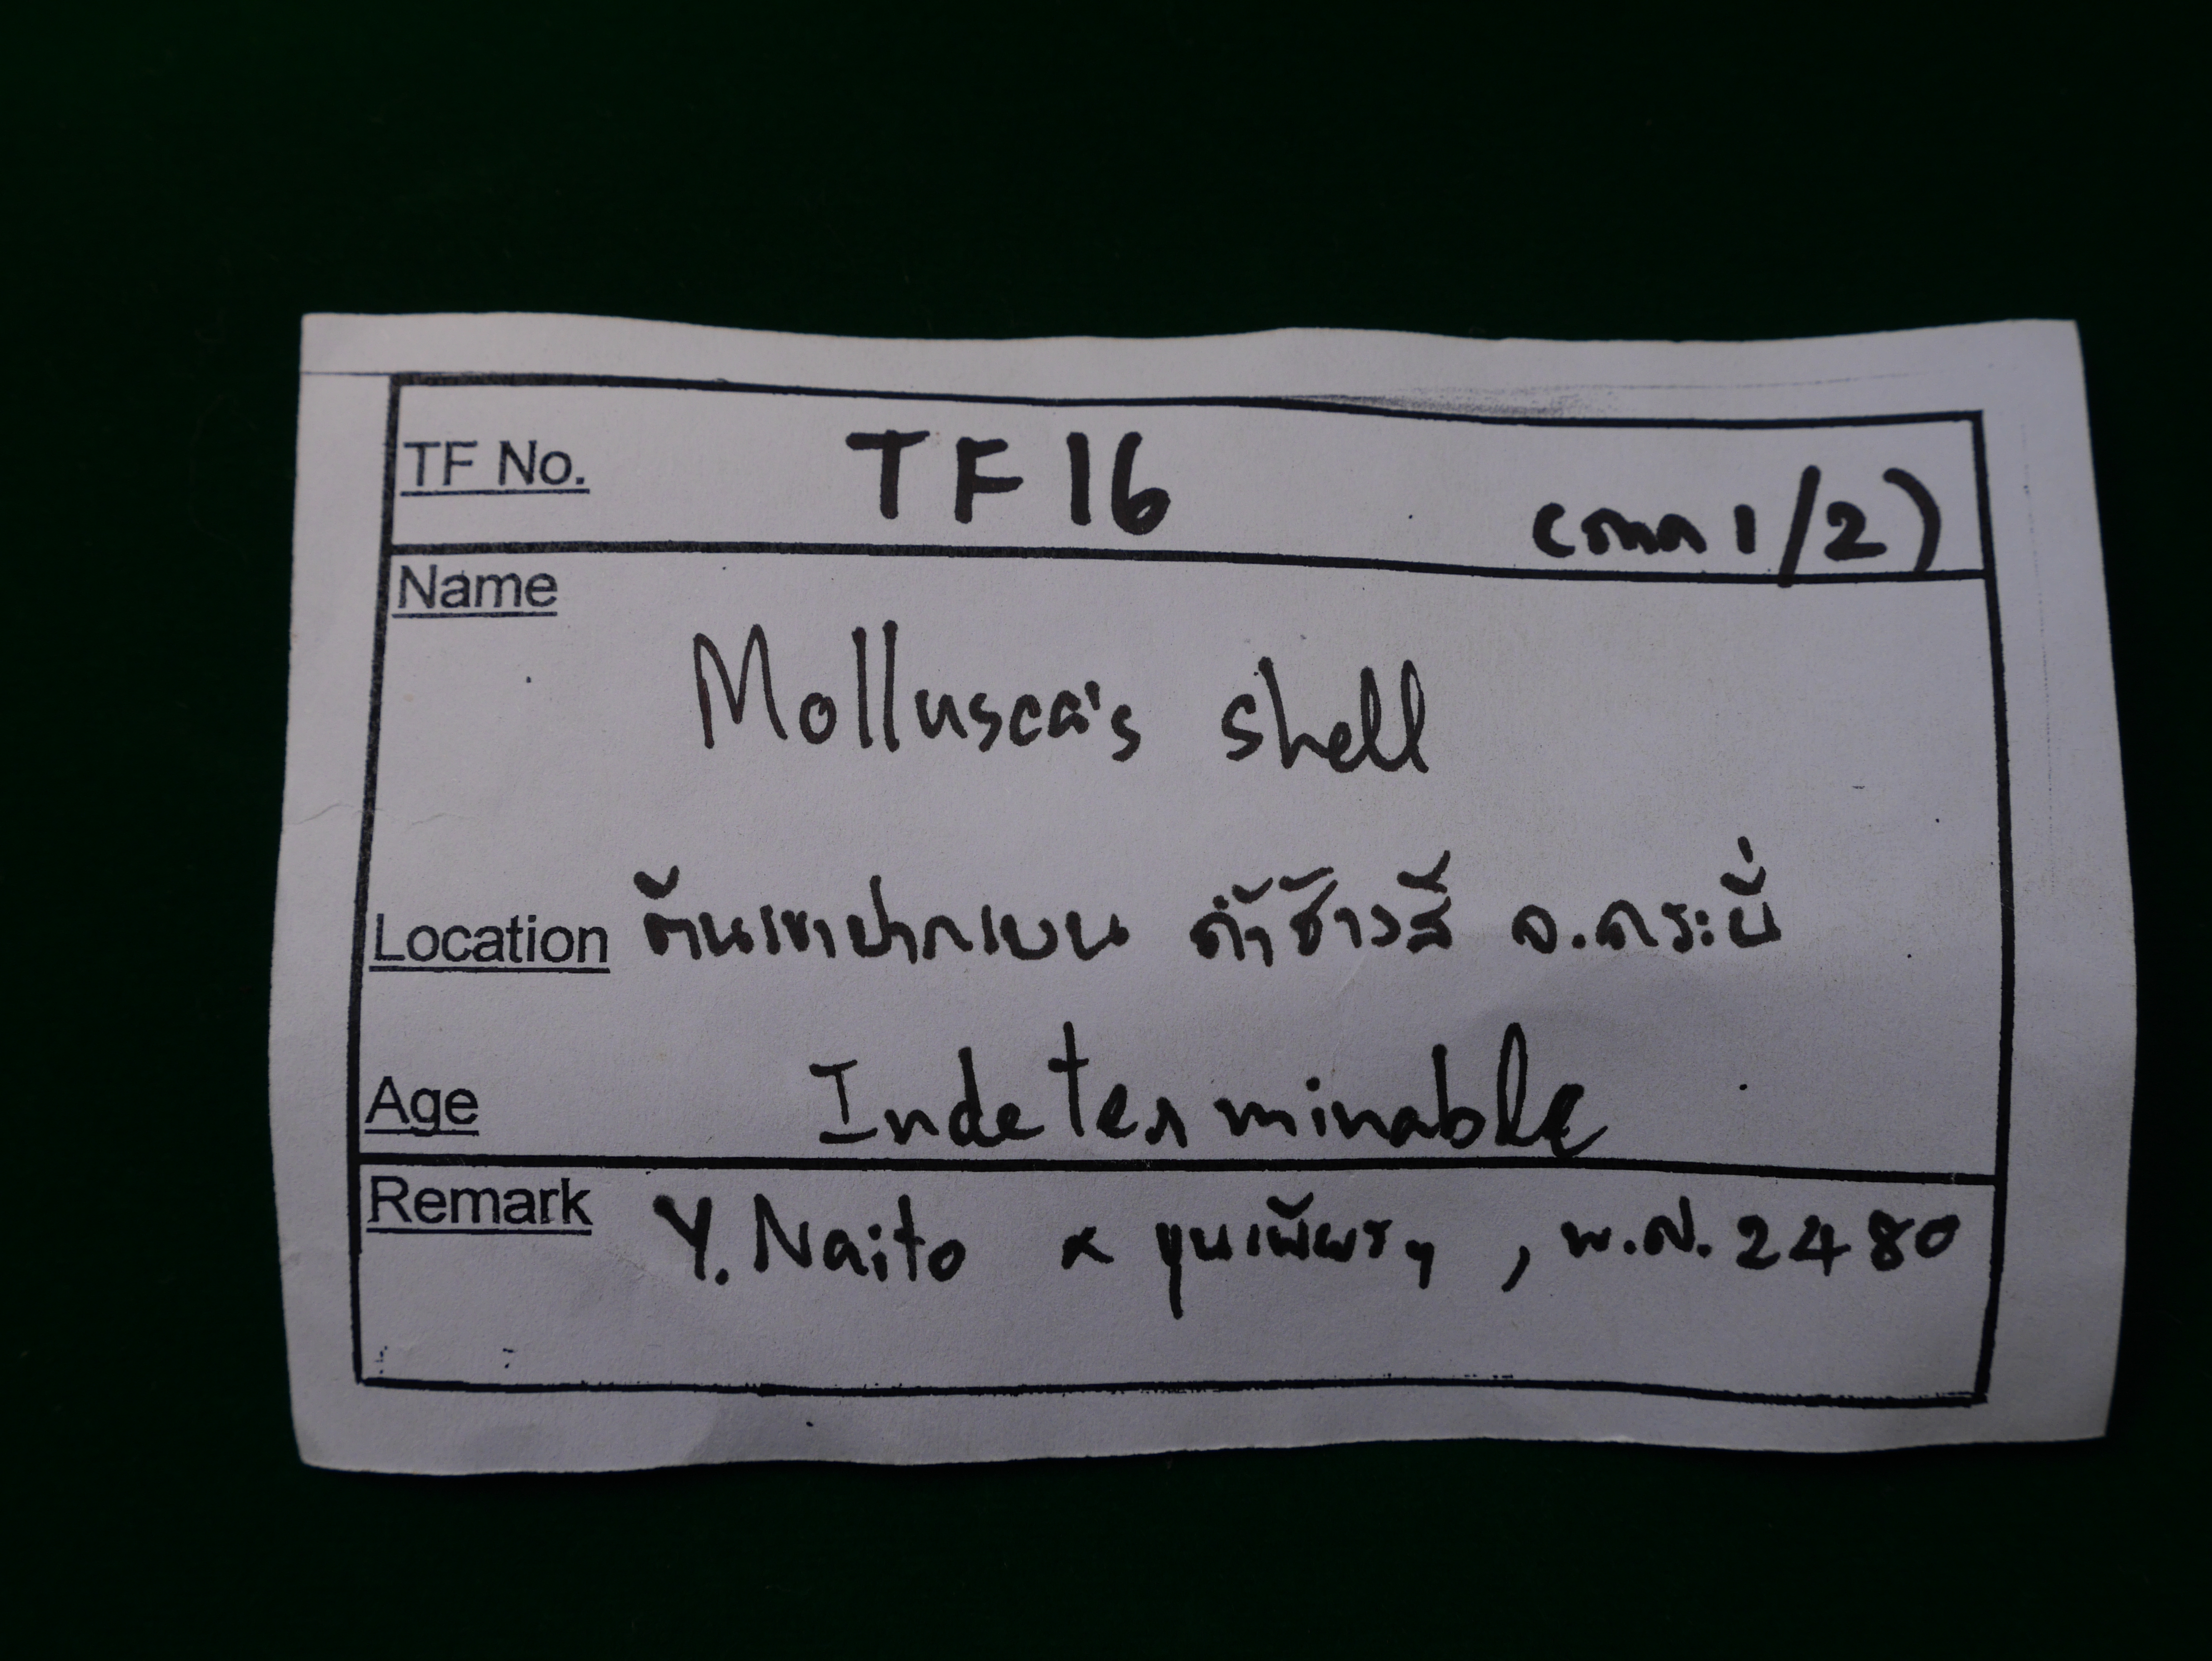 TF No. TF 16 (ถาด 1/2)
Name
Mollusca's shell
Location ต้นเขาปากแบน ถ้ำช้างสี จ.กระบี่
Age Indeterminable
Remark Y. Naito & ขุนเพียรฯ, พ.ศ. 2480